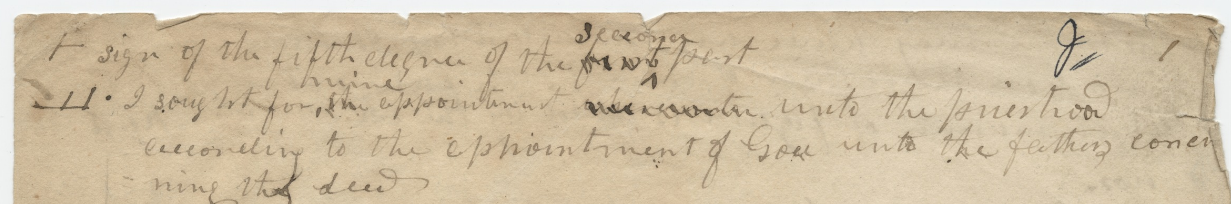 + sign of the fifth degree of the second part J 1
11. I sought for mine appointment unto the priesthood
according to the appointment of God unto the fathers concer
ning the seed